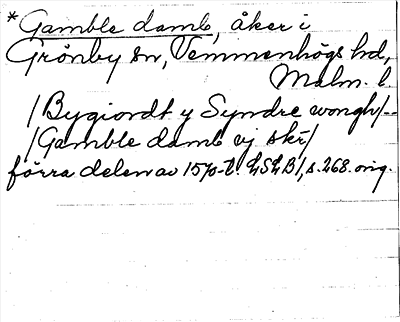 *Gamble damb, åker i
Grönby sn, Vemmenhögs hd,
Malm. l.
/Bygiordt y Syndre wongh/--
/Gamble damb vj skr/
förra delen av 1570-t. LSLB, s. 268. orig.